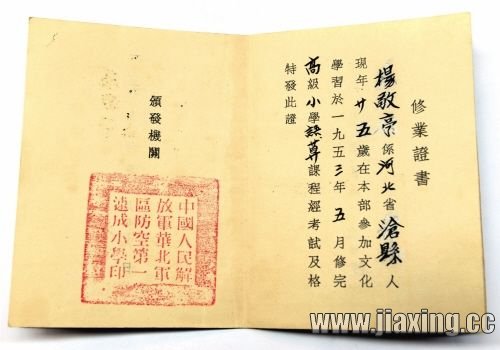 修業證書
楊敬亭係河北省滄縣人
現年廿五歲在本部參加文化
學習於一九五三年五月修完
高級小學語算課程經考試及格
特發此證
頒發機關
中國人民解
放軍華北軍
區防空第一
速成小學印
www.jiaxing.cc